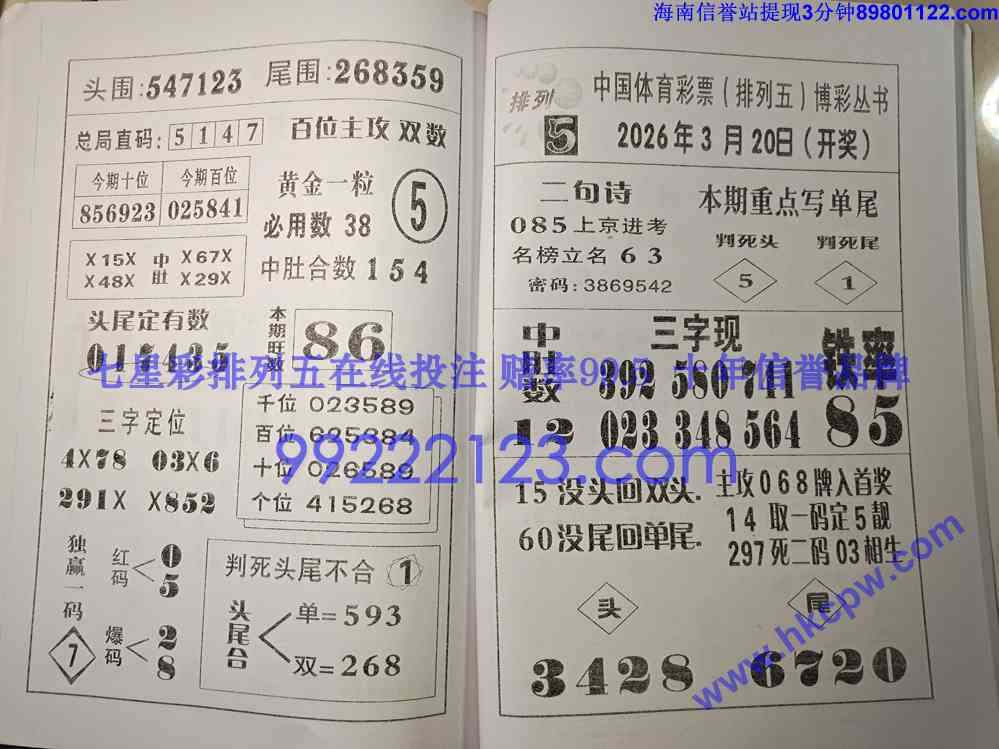 海南信誉站提现3分钟89801122.com
头围:547123 尾围:268359
总局直码: 5 1 4 7
百位主攻 双数
今期十位 今期百位
856923 025841
黄金一粒
必用数 38
5
X15X 中 X67X
X48X 肚 X29X
中肚合数 1 5 4
头尾定有数
本期旺数
86
三字定位
4X78 03X6
291X XX852
千位 023589
百位 635384
十位 026589
个位 415268
独赢一码
7
红码
0
5
爆码
2
8
判死头尾不合 1
头尾合
单=593
双=268
排列
5
中国体育彩票(排列五)博彩丛书
2026年3月20日(开奖)
二句诗
085上京进考
名榜立名 6 3
密码:3869542
本期重点写单尾
判死头 判死尾
5 1
中肚数
12
三字现
392 580 741
023 348 564
铁率
85
15没头回双头.
60没尾回单尾.
主攻068牌入首奖
14 取一码定5靓
297死二码03相生
头 尾
3428 6720
七星彩排列五在线投注 赔率99.5 十年信誉品牌
99222123.com
www.hkcpw.com